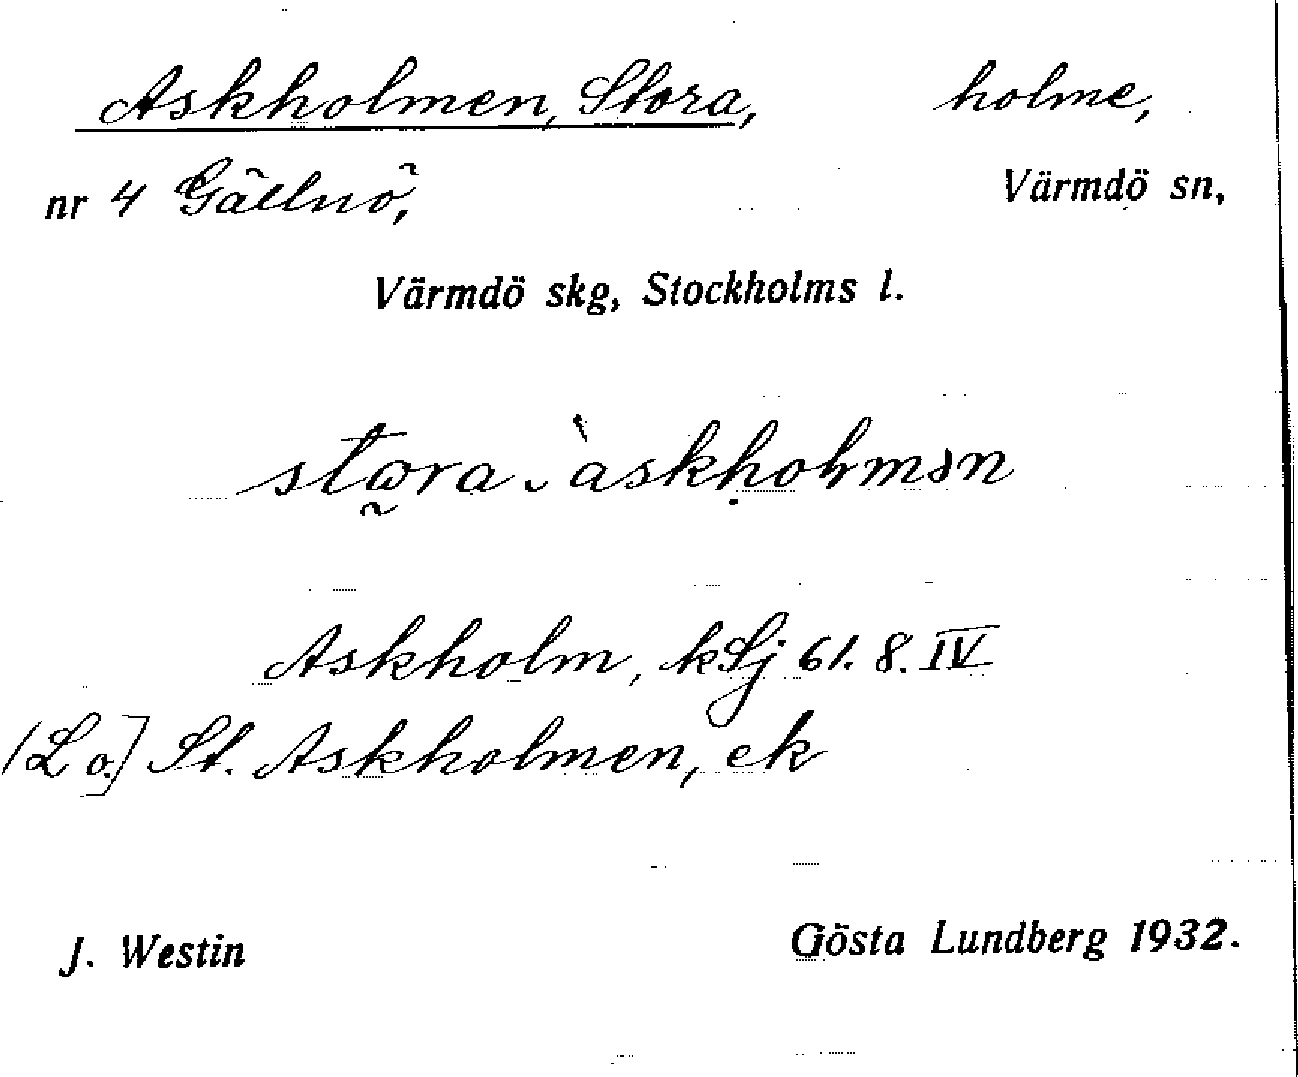 Askholmen, Stora, holme,
nr 4 Gällnö, Värmdö sn,
Värmdö skg, Stockholms l.
Askholm, kSj 61. 8. IV
[Lo.] St. Askholmen, ek
J. Westin Gösta Lundberg 1932.